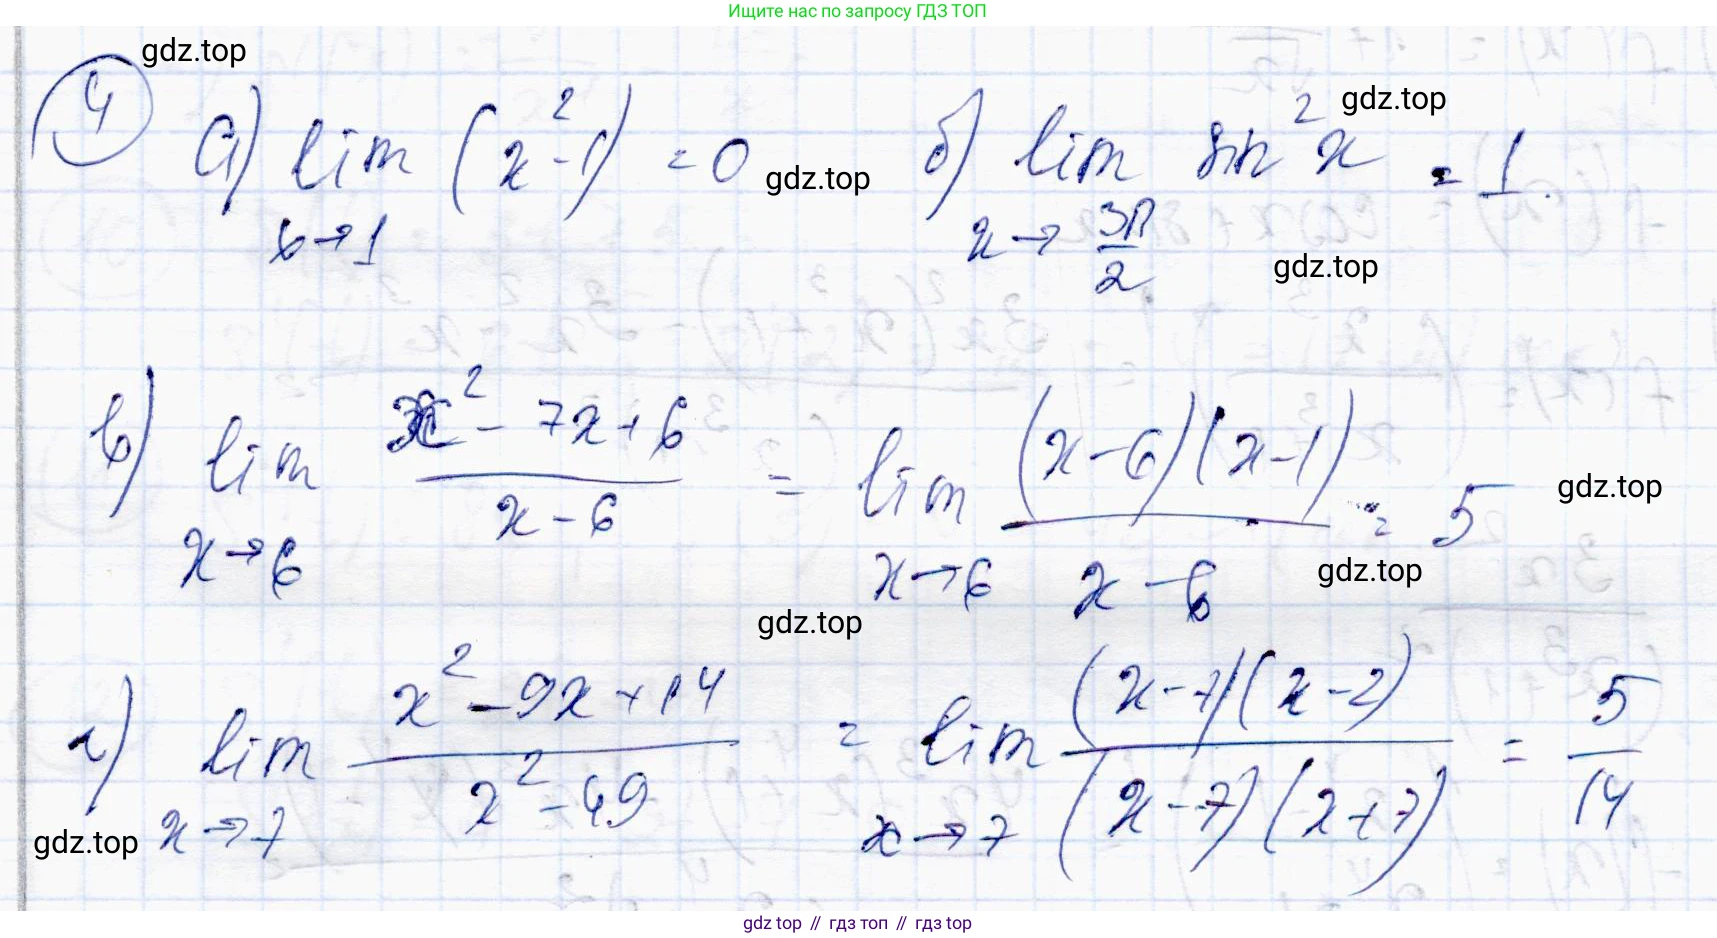 Ищите нас по запросу ГДЗ ТОП
gdz.top
④ а) lim (x² - 1) = 0 gdz.top б) lim sin² x = 1. gdz.top
x→1 x→ 3π/2 gdz.top
в) lim (x² - 7x + 6)/(x - 6) = lim ((x-6)(x-1))/(x-6) = 5 gdz.top
x→6 x→6 gdz.top
gdz.top
г) lim (x² - 9x + 14)/(x² - 49) = lim ((x-7)(x-2))/((x-7)(x+7)) = 5/14
gdz.top x→7 x→7
gdz top // гдз топ // гдз top